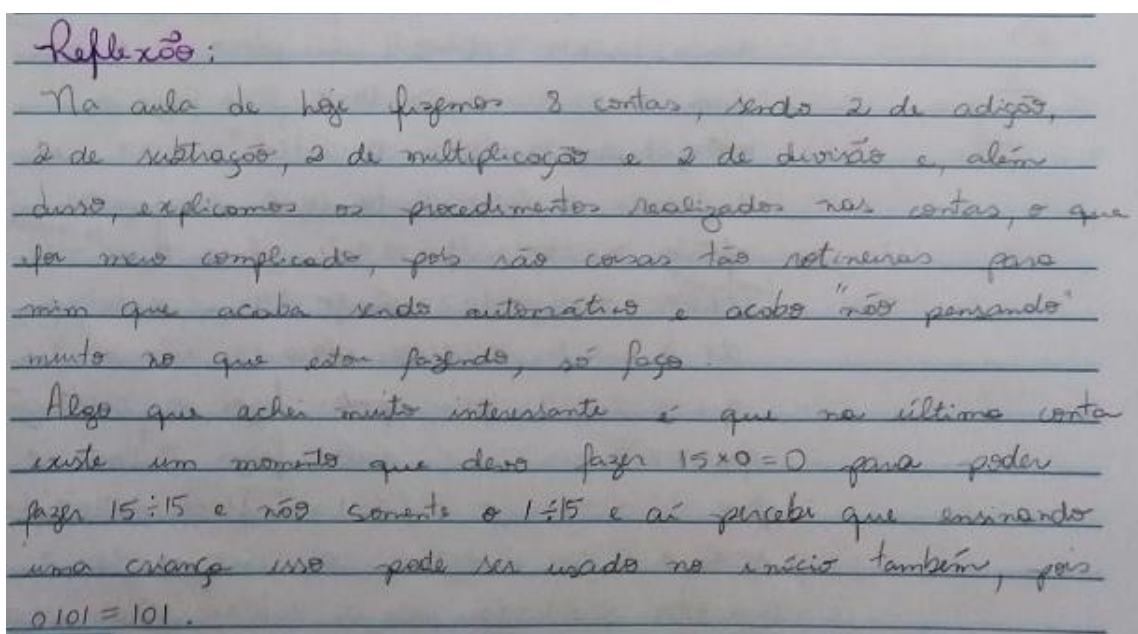 Reflexão:
Na aula de hoje fizemos 8 contas, sendo 2 de adição,
2 de subtração, 2 de multiplicação e 2 de divisão e, além
disso, explicamos os procedimentos realizados nas contas, o que
foi meio complicado, pois são coisas tão rotineiras para
mim que acaba sendo automático e acabo "não pensando"
muito no que estou fazendo, só faço.
Algo que achei muito interessante é que na última conta
existe um momento que devo fazer 15x0=0 para poder
fazer 15÷15 e não somente o 1÷15 e aí percebi que ensinando
uma criança isso pode ser usado no início também, pois
0101=101.